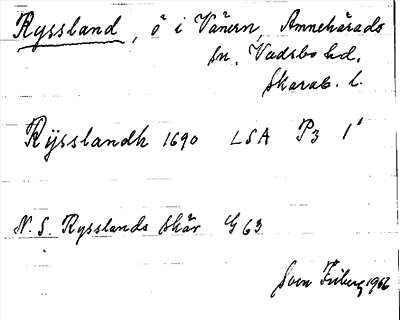 Ryssland, ö i Vänern, Amnehärads
sn, Vadsbo hd,
Skarab. l.
Rÿsslandh 1690 LSA P3 1'
N. S. Rysslands skär G 63
Sven Friberg 1966